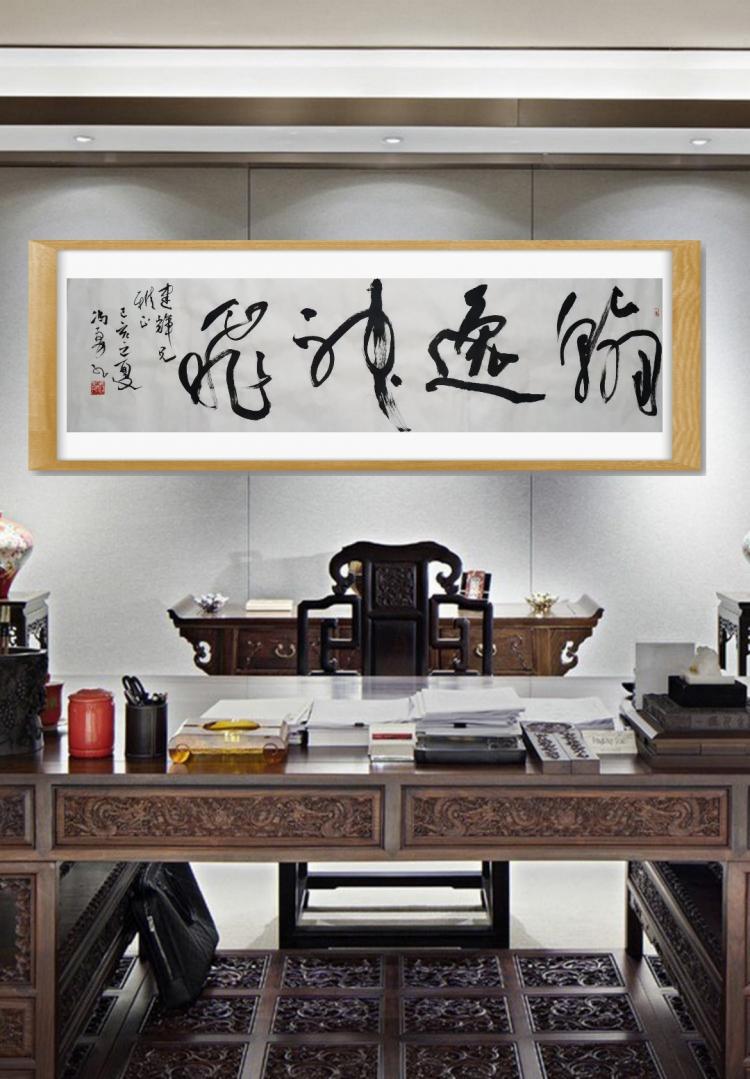 翰逸神飛
建兄
雅正
己亥之夏
冯勇书